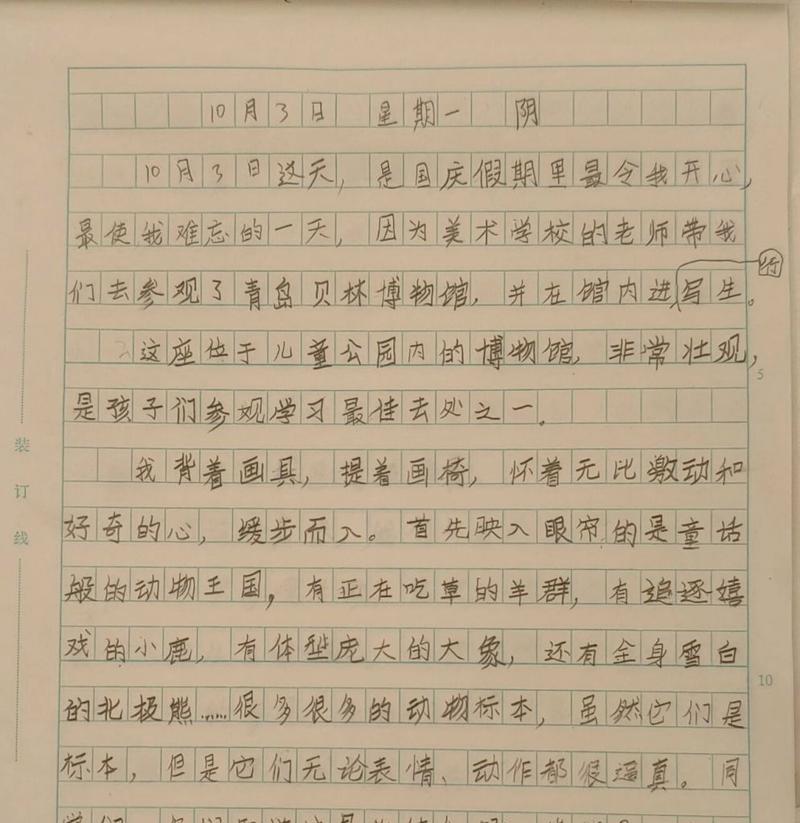 10月3日 星期一 阴
10月3日这天，是国庆假期里最令我开心，
最使我难忘的一天，因为美术学校的老师带我
们去参观了青岛贝林博物馆，并在馆内进行写生。
这座位于儿童公园内的博物馆，非常壮观，
5
是孩子们参观学习最佳去处之一。
我背着画具，提着画椅，怀着无比激动和
好奇的心，缓步而入。首先映入眼帘的是童话
般的动物王国，有正在吃草的羊群，有追逐嬉
戏的小鹿，有体型庞大的大象，还有全身雪白
10
的北极熊……很多很多的动物标本，虽然它们是
标本，但是它们无论表情、动作都很逼真。同
装订线